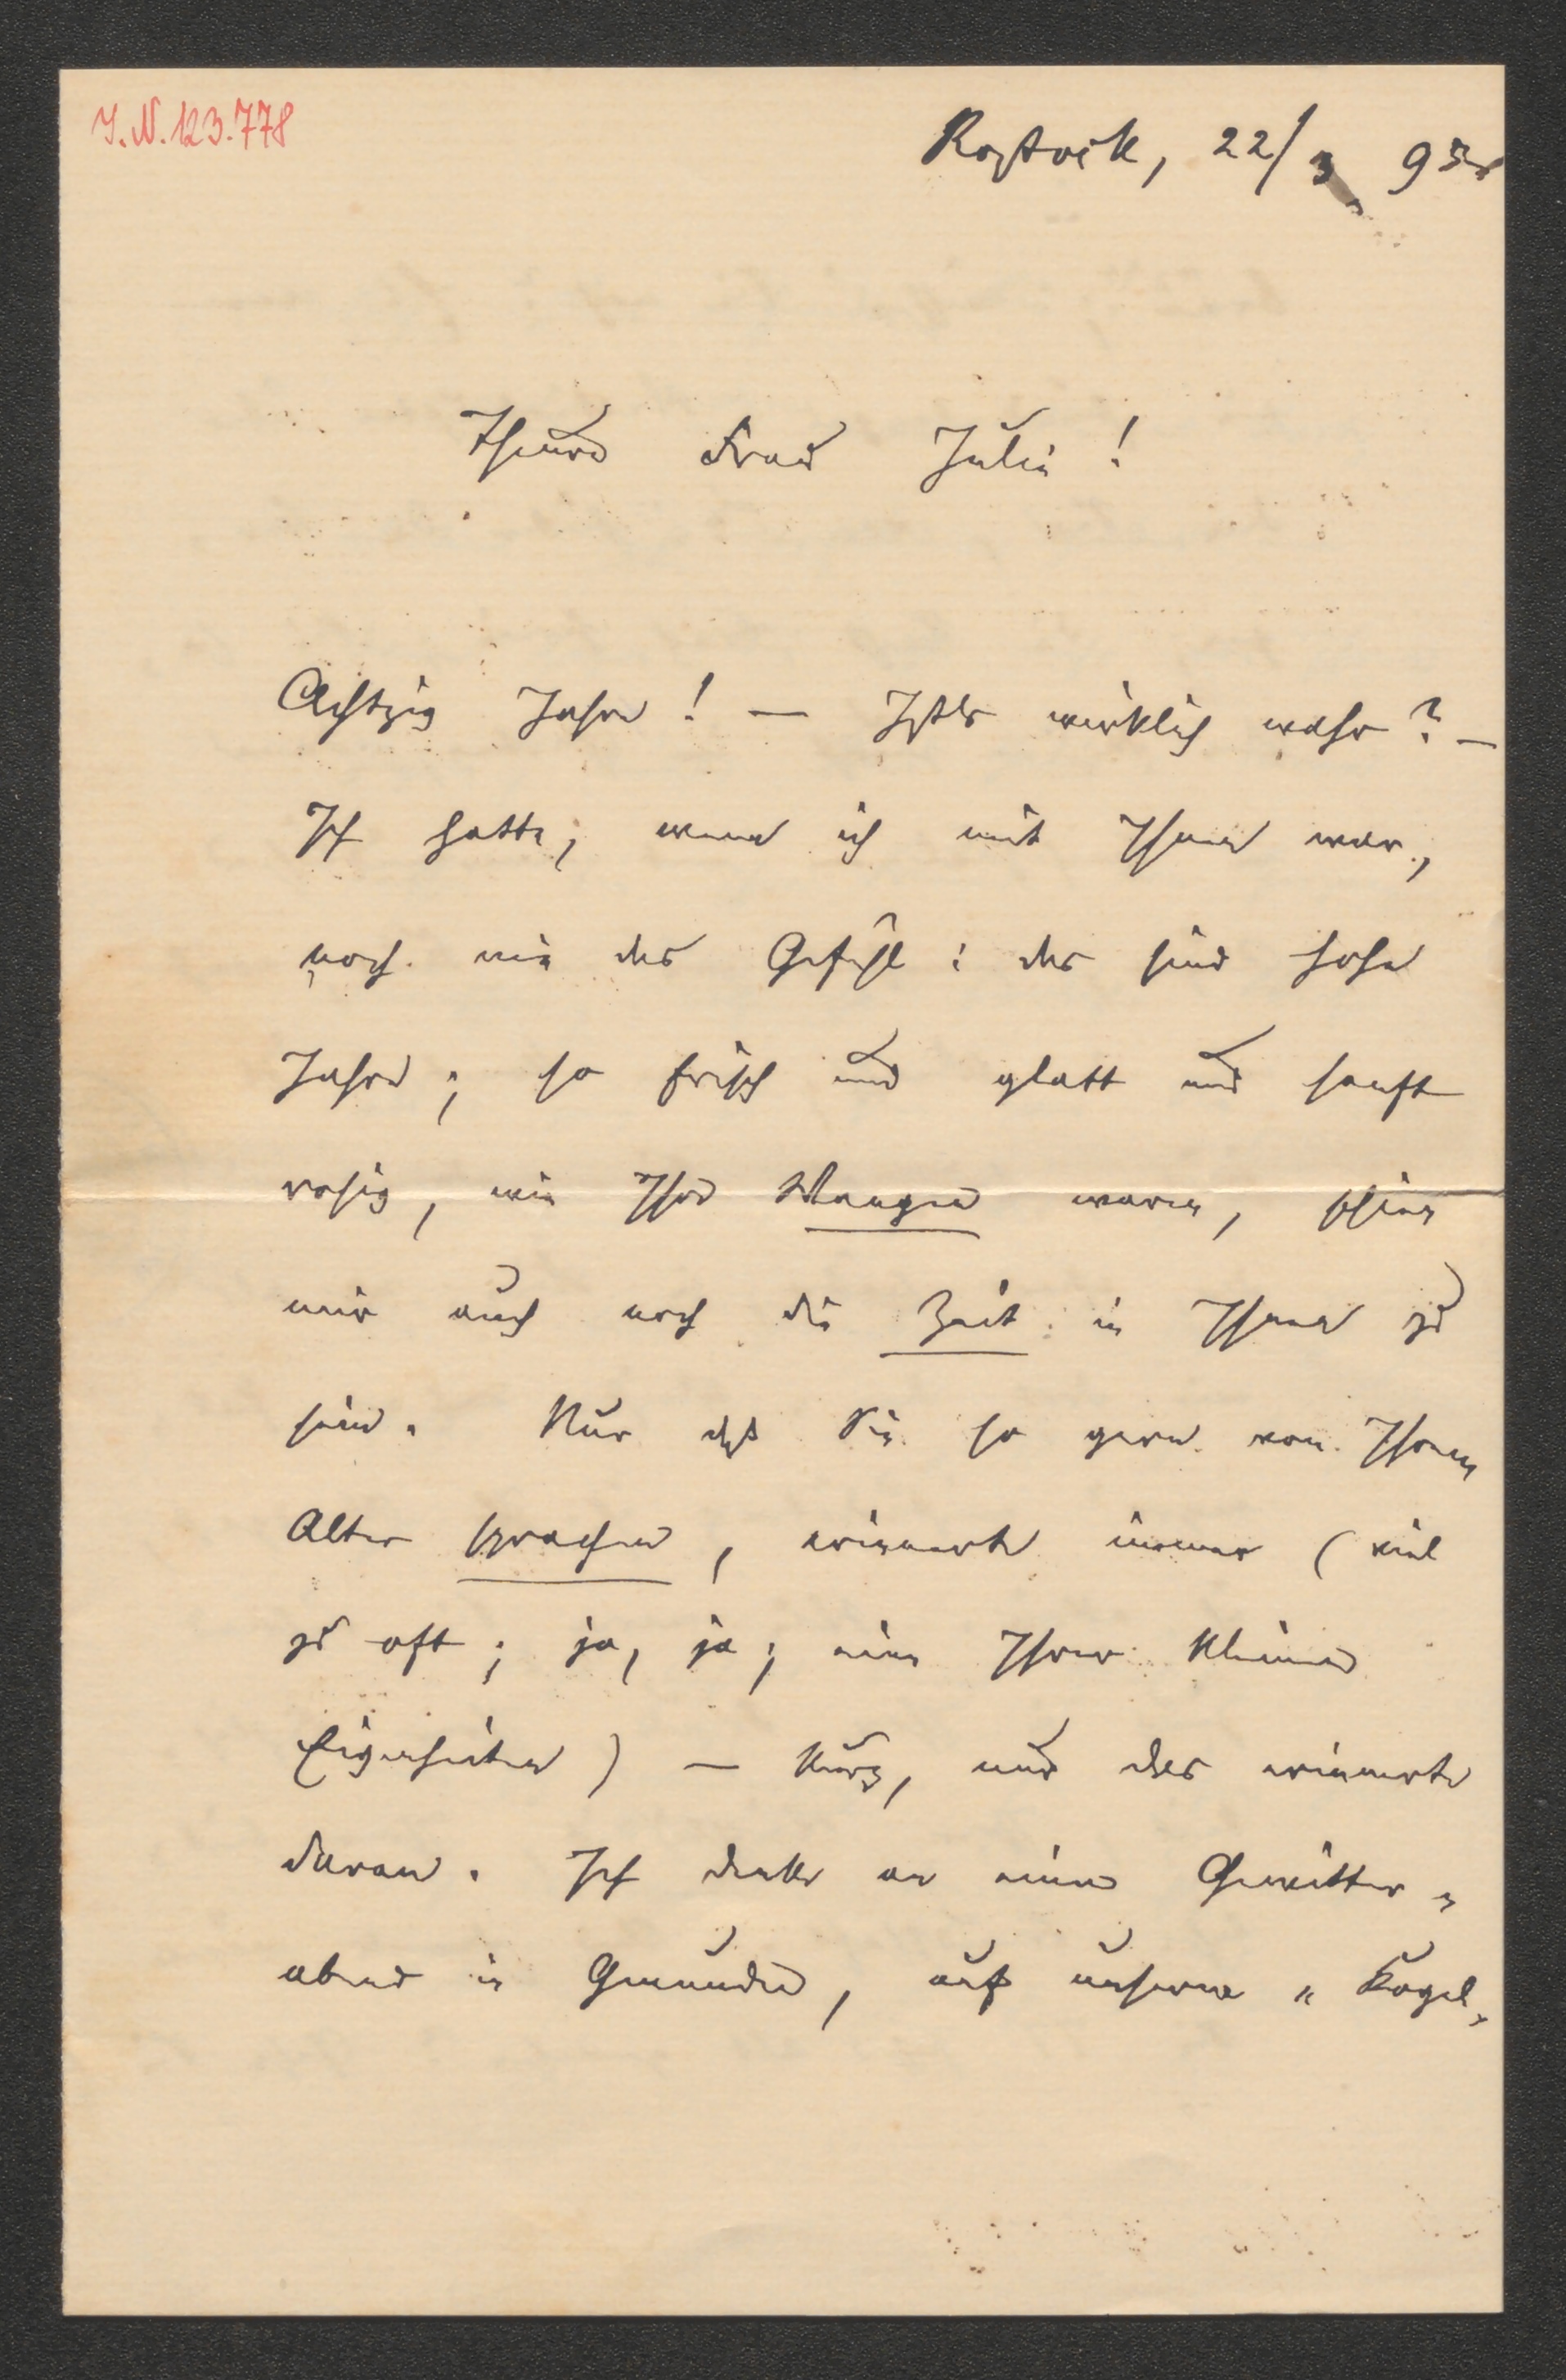 I.N.123.778
Rostock, 22/3 95
Theure Frau Julie!
Achtzig Jahre! — Ist's wirklich wahr? —
Ich hatte, wenn ich mit Ihnen war,
noch nie das Gefühl: das sind hohe
Jahre; so frisch und glatt und sanft
rosig, wie Ihre Wangen waren, schien
mir auch noch die Zeit in Ihnen zu
sein. Nur daß Sie so gern von Ihrem
Alter sprachen, erinnerte immer (viel
zu oft; ja, ja; eine Ihrer kleinen
Eigenheiten) — kurz, nur das erinnerte
daran. Ich denke an einen Gewitter-
abend in Gmunden, auf unserm „Kogel,